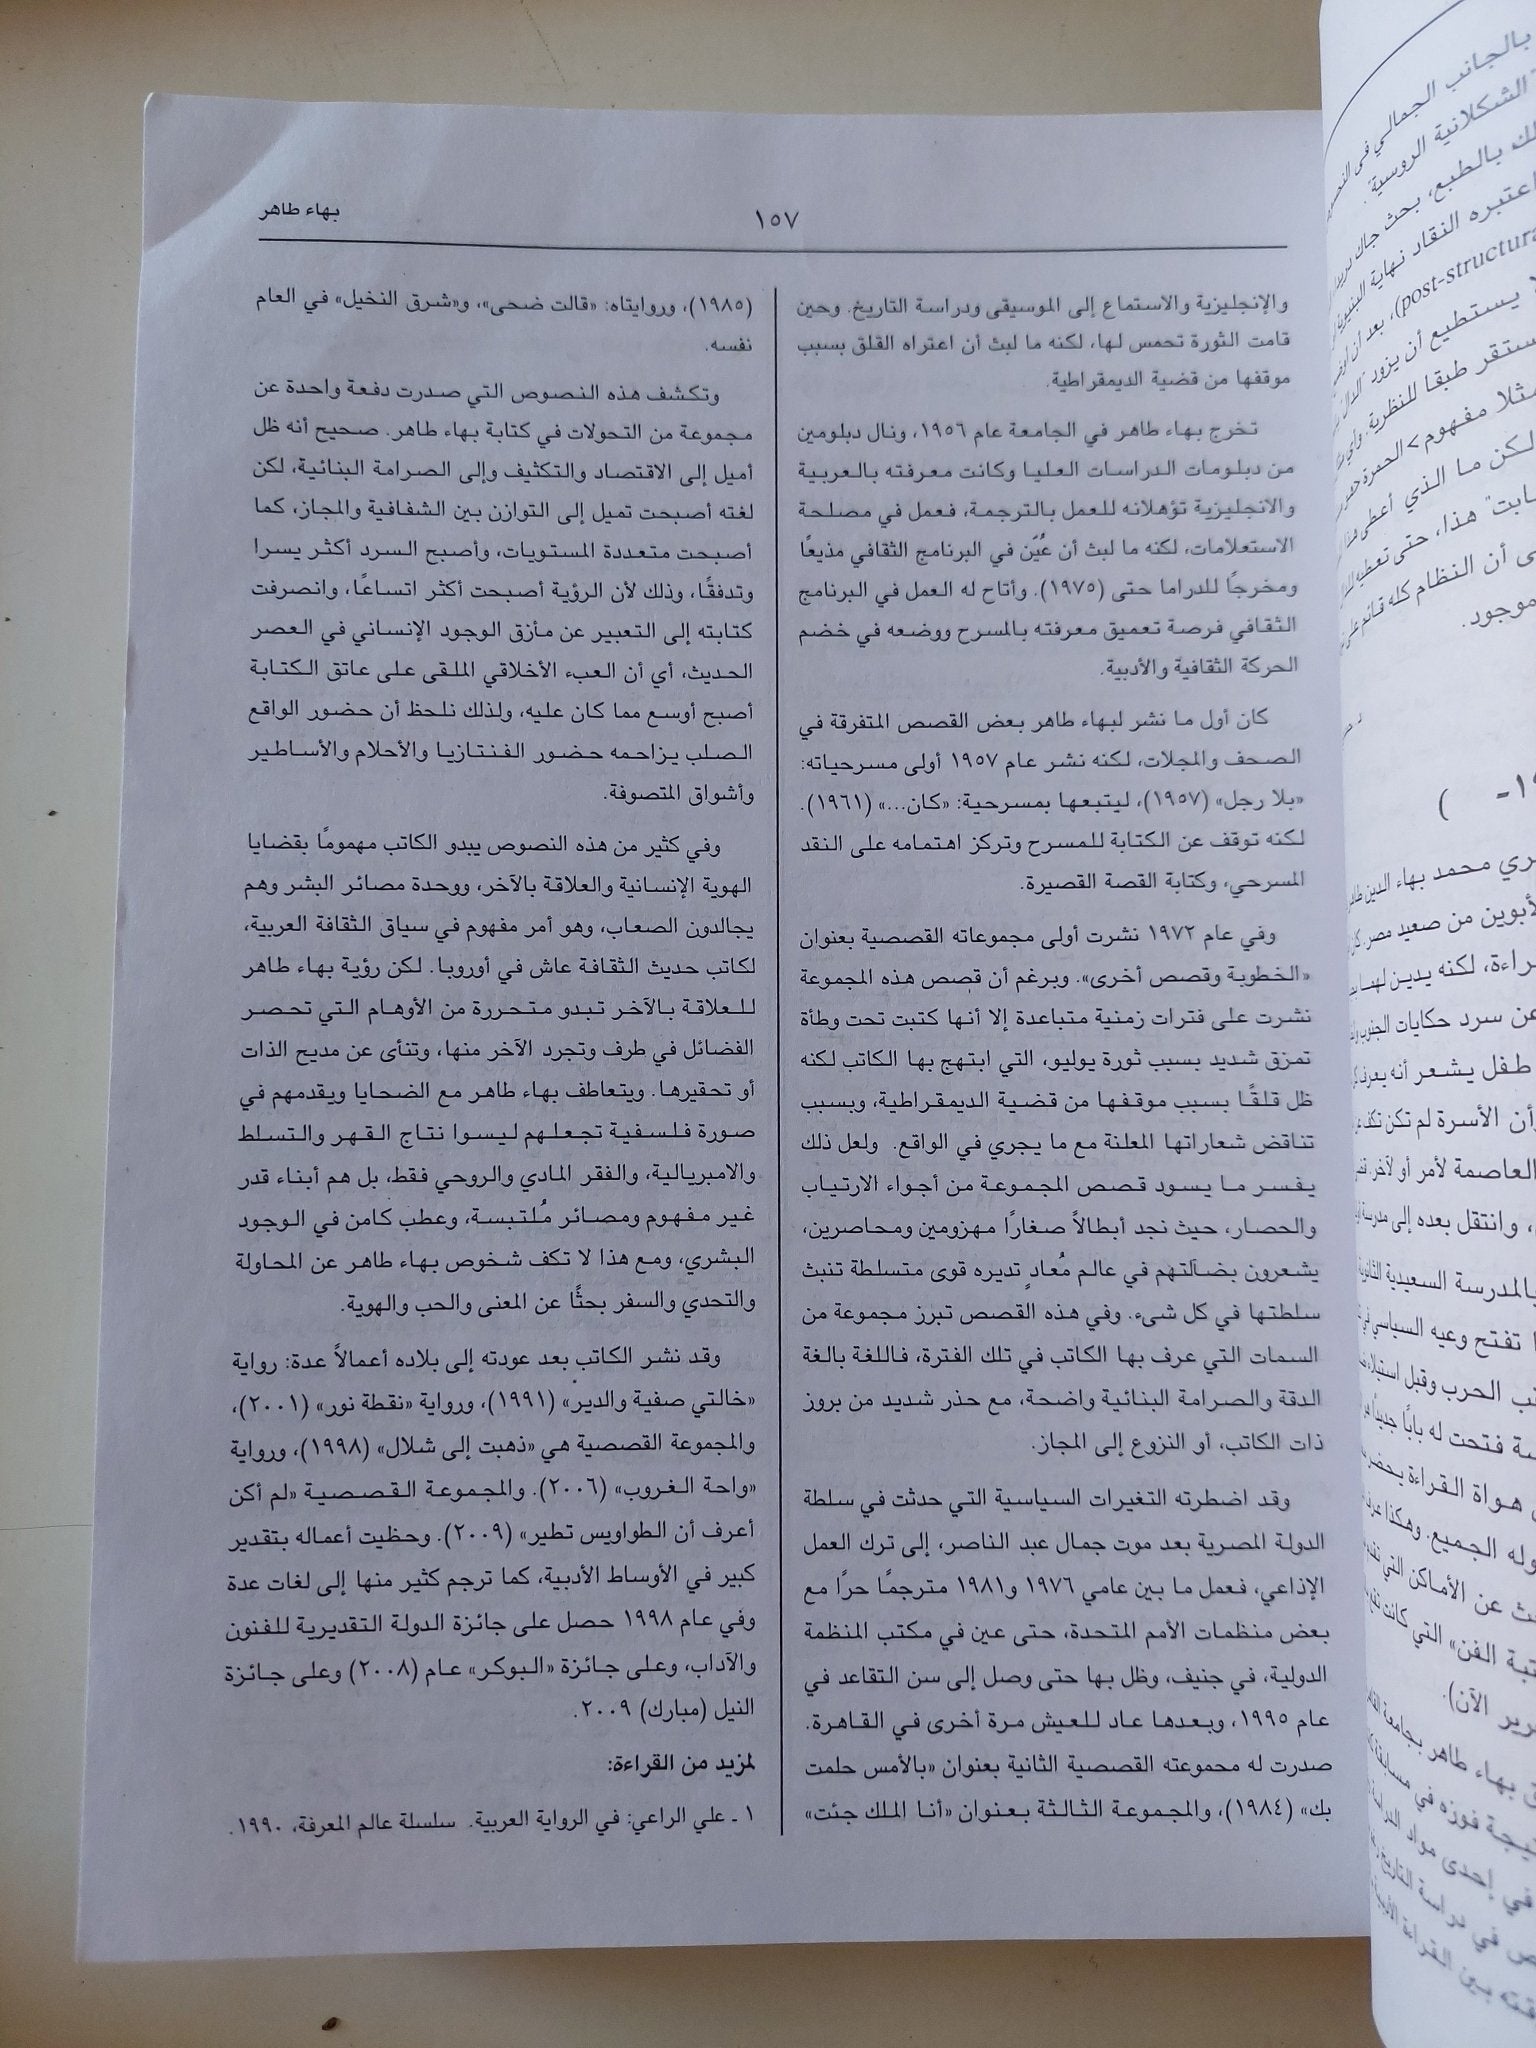 ١٥٧
بهاء طاهر
والإنجليزية والاستماع إلى الموسيقى ودراسة التاريخ. وحين
قامت الثورة تحمس لها، لكنه ما لبث أن اعتراه القلق بسبب
موقفها من قضية الديمقراطية.
تخرج بهاء طاهر في الجامعة عام ١٩٥٦، ونال دبلومين
من دبلومات الدراسات العليا وكانت معرفته بالعربية
والانجليزية تؤهلانه للعمل بالترجمة، فعمل في مصلحة
الاستعلامات، لكنه ما لبث أن عُيَن في البرنامج الثقافي مذيعًا
ومخرجًا للدراما حتى (١٩٧٥). وأتاح له العمل في البرنامج
الثقافي فرصة تعميق معرفته بالمسرح ووضعه في خضم
الحركة الثقافية والأدبية.
كان أول ما نشر لبهاء طاهر بعض القصص المتفرقة في
الصحف والمجلات، لكنه نشر عام ١٩٥٧ أولى مسرحياته:
«بلا رجل» (١٩٥٧)، ليتبعها بمسرحية: «كان...» (١٩٦١).
لكنه توقف عن الكتابة للمسرح وتركز اهتمامه على النقد
المسرحي، وكتابة القصة القصيرة.
وفي عام ١٩٧٢ نشرت أولى مجموعاته القصصية بعنوان
«الخطوبة وقصص أخرى». وبرغم أن قصص هذه المجموعة
نشرت على فترات زمنية متباعدة إلا أنها كتبت تحت وطأة
تمزق شديد بسبب ثورة يوليو، التي ابتهج بها الكاتب لكنه
ظل قلقًا بسبب موقفها من قضية الديمقراطية، وبسبب
تناقض شعاراتها المعلنة مع ما يجري في الواقع. ولعل ذلك
يفسر ما يسود قصص المجموعة من أجواء الارتياب
والحصار، حيث نجد أبطالاً صغارًا مهزومين ومحاصرين،
يشعرون بضآلتهم في عالم مُعادٍ تديره قوى متسلطة تنبث
سلطتها في كل شىء. وفي هذه القصص تبرز مجموعة من
السمات التي عرف بها الكاتب في تلك الفترة، فاللغة بالغة
الدقة والصرامة البنائية واضحة، مع حذر شديد من بروز
ذات الكاتب، أو النزوع إلى المجاز.
وقد اضطرته التغيرات السياسية التي حدثت في سلطة
الدولة المصرية بعد موت جمال عبد الناصر، إلى ترك العمل
الإذاعي، فعمل ما بين عامي ١٩٧٦ و١٩٨١ مترجمًا حرًا مع
بعض منظمات الأمم المتحدة، حتى عين في مكتب المنظمة
الدولية، في جنيف، وظل بها حتى وصل إلى سن التقاعد في
عام ١٩٩٥، وبعدها عاد للعيش مرة أخرى في القاهرة.
صدرت له مجموعته القصصية الثانية بعنوان «بالأمس حلمت
بك» (١٩٨٤)، والمجموعة الثالثة بعنوان «أنا الملك جئت»
(١٩٨٥)، وروايتاه: «قالت ضحى»، و«شرق النخيل» في العام
نفسه.
وتكشف هذه النصوص التي صدرت دفعة واحدة عن
مجموعة من التحولات في كتابة بهاء طاهر. صحيح أنه ظل
أميل إلى الاقتصاد والتكثيف وإلى الصرامة البنائية، لكن
لغته أصبحت تميل إلى التوازن بين الشفافية والمجاز، كما
أصبحت متعددة المستويات، وأصبح السرد أكثر يسرا
وتدفقًا، وذلك لأن الرؤية أصبحت أكثر اتساعًا، وانصرفت
كتابته إلى التعبير عن مأزق الوجود الإنساني في العصر
الحديث، أي أن العبء الأخلاقي الملقى على عاتق الكتابة
أصبح أوسع مما كان عليه، ولذلك نلحظ أن حضور الواقع
الصلب يزاحمه حضور الفنتازيا والأحلام والأساطير
وأشواق المتصوفة.
وفي كثير من هذه النصوص يبدو الكاتب مهمومًا بقضايا
الهوية الإنسانية والعلاقة بالآخر، ووحدة مصائر البشر وهم
يجالدون الصعاب، وهو أمر مفهوم في سياق الثقافة العربية،
لكاتب حديث الثقافة عاش في أوروبا. لكن رؤية بهاء طاهر
للعلاقة بالآخر تبدو متحررة من الأوهام التي تحصر
الفضائل في طرف وتجرد الآخر منها، وتنأى عن مديح الذات
أو تحقيرها. ويتعاطف بهاء طاهر مع الضحايا ويقدمهم في
صورة فلسفية تجعلهم ليسوا نتاج القهر والتسلط
والامبريالية، والفقر المادي والروحي فقط، بل هم أبناء قدر
غير مفهوم ومصائر مُلتبسة، وعطب كامن في الوجود
البشري، ومع هذا لا تكف شخوص بهاء طاهر عن المحاولة
والتحدي والسفر بحثًا عن المعنى والحب والهوية.
وقد نشر الكاتب بعد عودته إلى بلاده أعمالاً عدة: رواية
«خالتي صفية والدير» (١٩٩١)، ورواية «نقطة نور» (٢٠٠١)،
والمجموعة القصصية هي «ذهبت إلى شلال» (١٩٩٨)، ورواية
«واحة الغروب» (٢٠٠٦). والمجموعة القصصية «لم أكن
أعرف أن الطواويس تطير» (٢٠٠٩). وحظيت أعماله بتقدير
كبير في الأوساط الأدبية، كما ترجم كثير منها إلى لغات عدة
وفي عام ١٩٩٨ حصل على جائزة الدولة التقديرية للفنون
والآداب، وعلى جائزة «البوكر» عام (٢٠٠٨) وعلى جائزة
النيل (مبارك) ٢٠٠٩.
لمزيد من القراءة:
١ ـ علي الراعي: في الرواية العربية. سلسلة عالم المعرفة، ١٩٩٠.